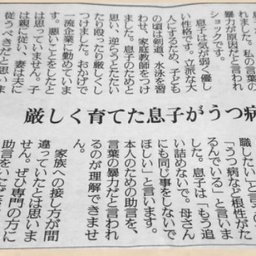 ました。私の言葉の
暴力が原因と言われ
ショックです。
息子は気弱で優し
い性格です。立派な大
人にするため、子ども
の頃は剣道、水泳を習
わせ、家庭教師をつけ
ました。息子のためと
思い、逆らうとたたい
たり殴ったり厳しくし
つけました。おかげで
一流企業に勤めていま
す。悪いことをしたと
は思っていません。子
は親に従い、妻は夫に
従うべきだと思いま
厳しく育てた息子がうつ病
職したい」と言
「うつ病など根性がた
るんでいる」と言いま
した。息子は「もう追
い詰めないで。母さん
にも同じ事をしないで
ほしい」と言います。
本人のための助言を、
言葉の暴力だと言われ
るのが理解できませ
ん。
家族への接し方が間
違っていたとは思いま
せん。ぜひ専門の方に
助言をいただき